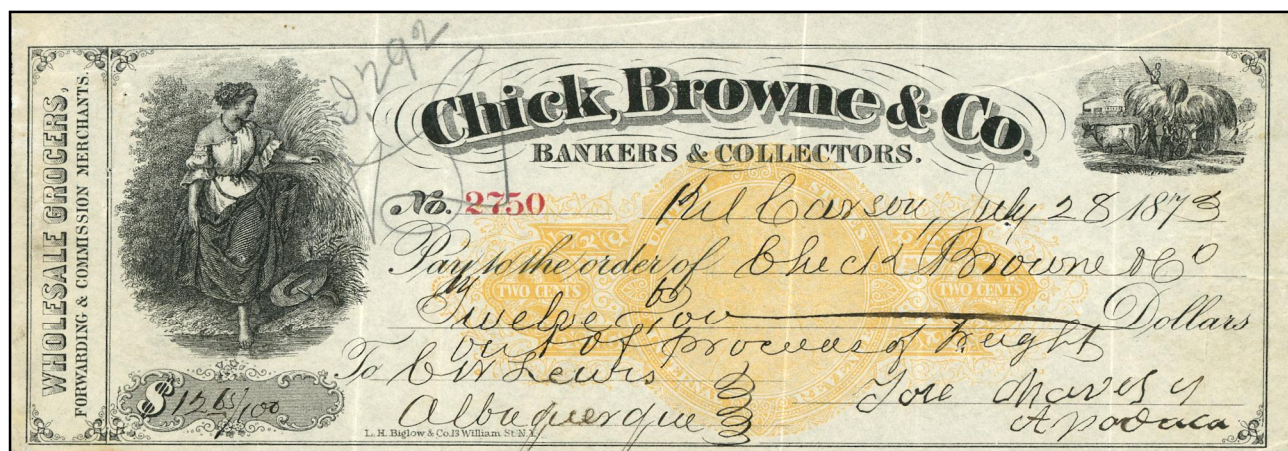 WHOLESALE GROCERS,
FORWARDING & COMMISSION MERCHANTS.
D. 292
Chick, Browne & Co.
BANKERS & COLLECTORS.
No. 2750 Kit Carson July 28 1873
Pay to the order of Chick Browne & Co
TWO CENTS TWO CENTS
Twelve Dollars
out of proceeds of Freight
To C W Lewis
Albuquerque
Jose Chaves y
Apodaca
$12 /100
L. H. Biglow & Co. 13 William St. N.Y.